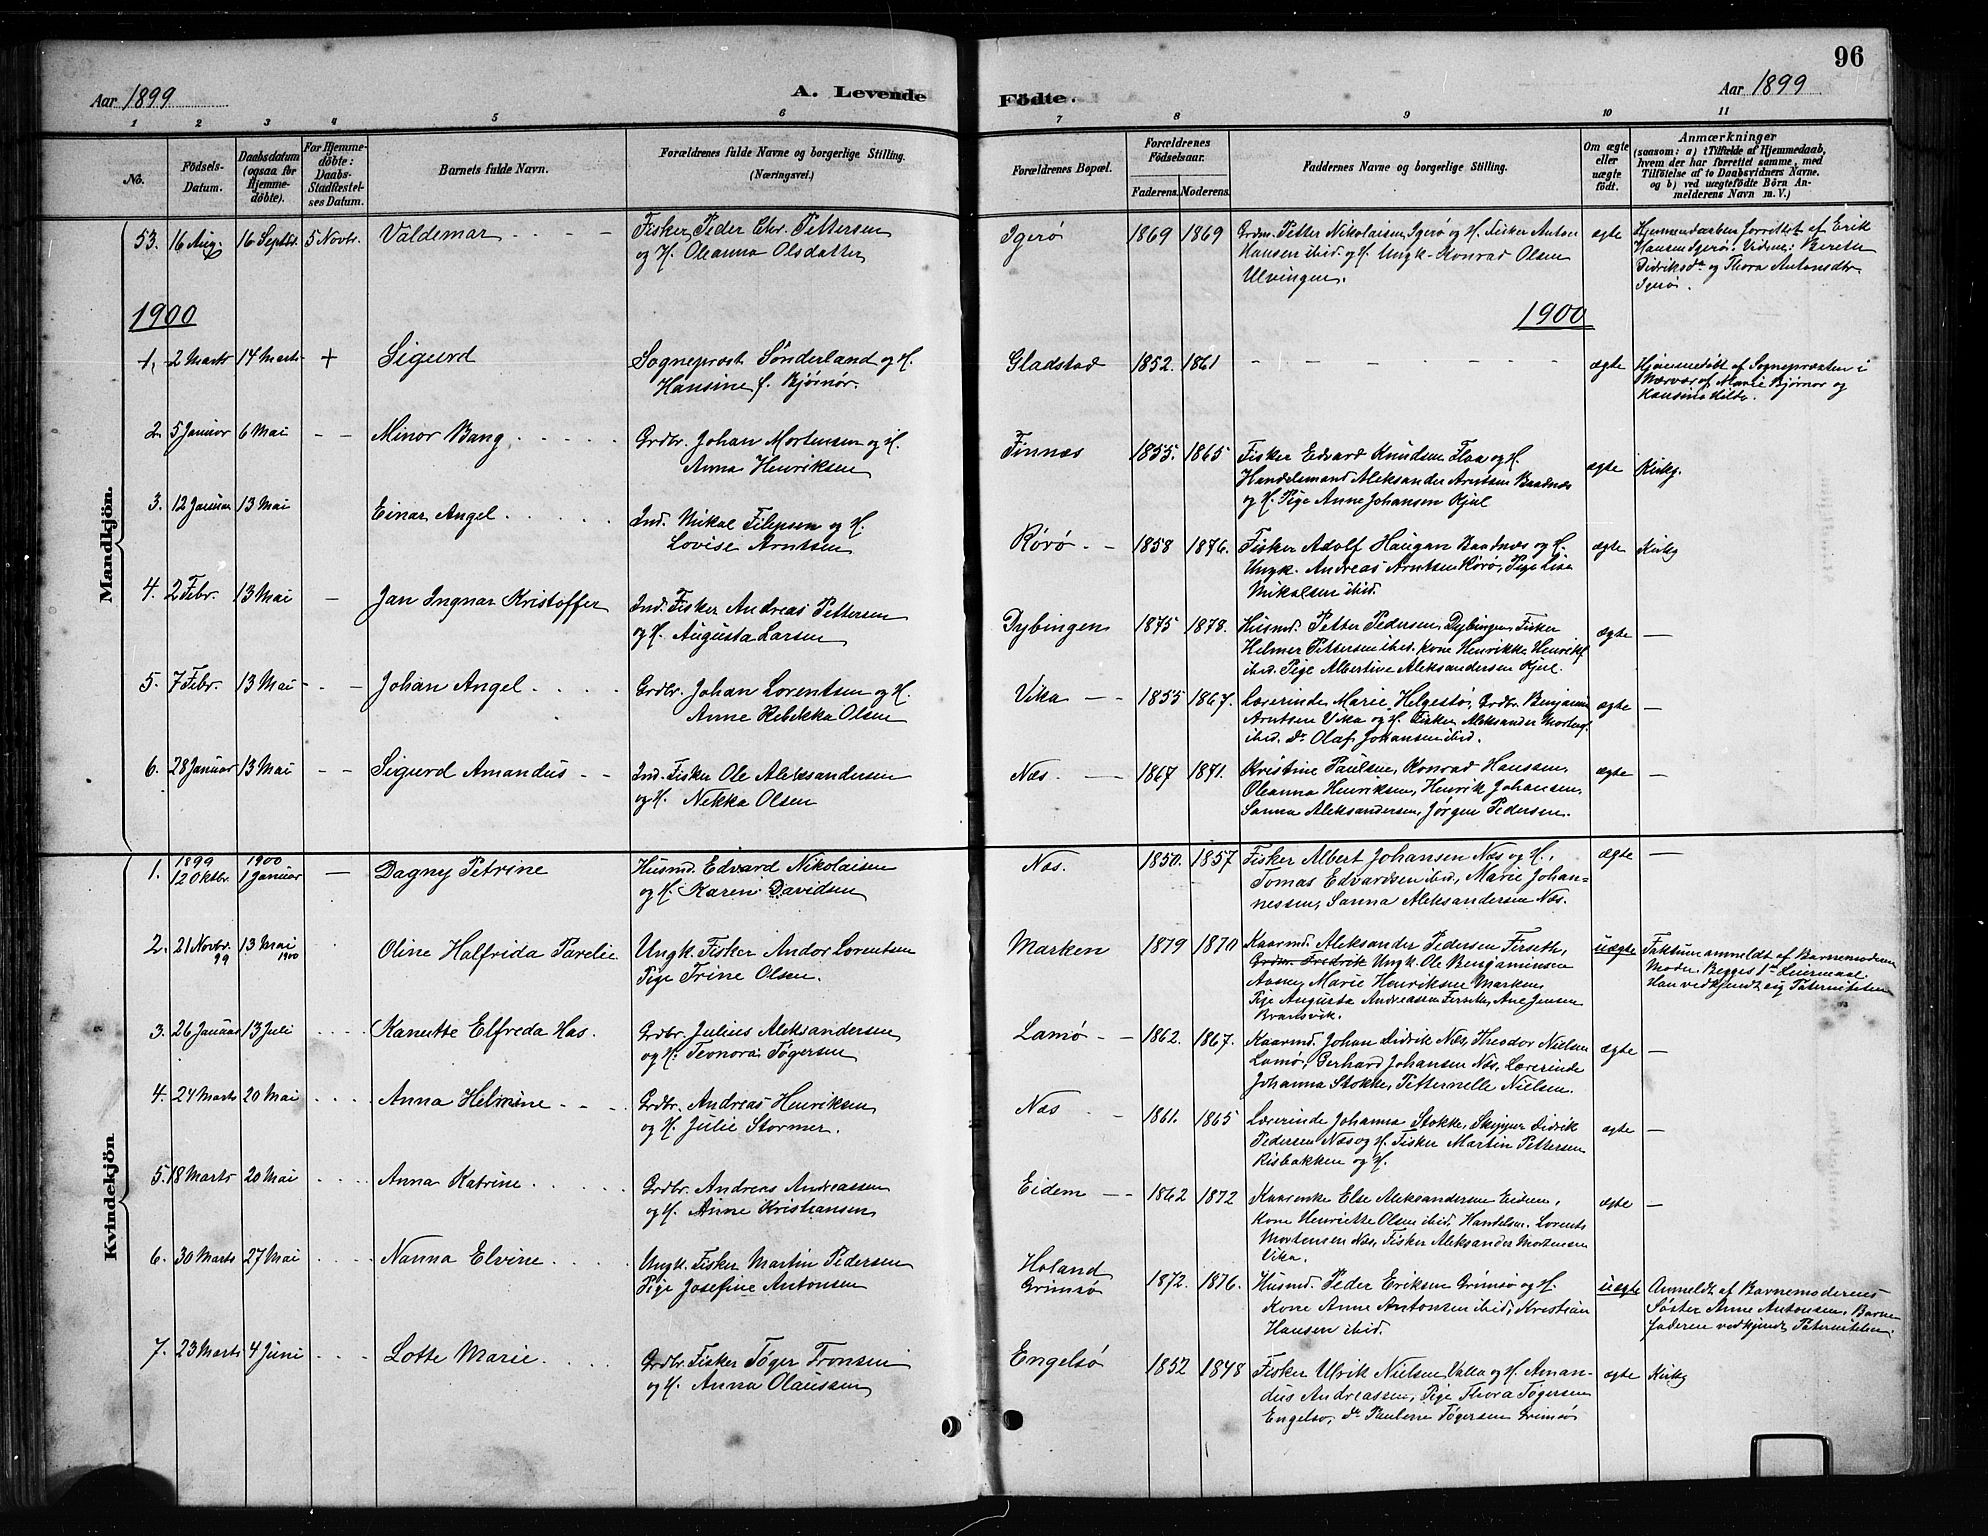 96
Aar 1899
A. Levende
Födte.
Aar 1899
1 2 3 4 5 6 7 8 9 10 11
No.
Födsels-Datum.
Daabsdatum (ogsaa for Hjemmedöbte).
For Hjemmedöbte: Daabs-Stadfæstelses Datum.
Barnets fulde Navn.
Forældrenes fulde Navne og borgerlige Stilling.
(Næringsvei.)
Forældrenes Bopæl.
Forældrenes Födselsaar.
Faderens. Moderens.
Faddernes Navne og borgerlige Stilling.
Om ægte eller uægte födt.
Anmærkninger
(saasom: a) i Tilfælde af Hjemmedaab, hvem der har forrettet samme, med Tilföielse af to Daabsvidners Navne. og b) ved uægtefödte Börn Anmelderens Navn m. V.)
53. 16 Aug. 16 Septbr. 5 Novbr. Valdemar
Fisker Peder Chr. Pettersen
og H. Oleanna Olsdatter
Igerø 1869 1869
Grdm. Petter Nikolaisen, Igerø og H. Fisker Anton
Hansen ibid. og H. Ungk. Konrad Olsen
Ulvingen.
ægte
Hjemmedaaben forrettet af Erik
Hansen Igerø. Vidner: Berete
Didriksdr. og Thora Antonsdtr.
Igerø.
1900
1900
1. 2 Marts 14 Marts + Sigurd
Sogneprest Sønderland og H.
Hansine f. Bjørnør.
Gladstad 1852. 1861
ægte
Hjemmedöbt af Sognepræsten i
Nærvær af Marie Bjørnør og
2. 5 Januar 6 Mai Minor Bang
Grdbr. Johan Mortensen og H.
Anna Henriksen
Finnæs 1855. 1865
Fisker Edvard Knudsen Flaa og H.
Handelsmand Aleksander Arntsen Baadnæs
og H. Pige Anne Johansen Kjul
ægte Kirkg.
3. 12 Januar 13 Mai Einar Angel
Ind. Mikal Filipsen og H.
Lovise Arntsen
Rørø 1858 1876.
Fisker Adolf Haugan Baadnæs og H.
Ungk. Andreas Arntsen Rørø, Pige Lise
Mikalsen ibid.
ægte Kirkg
4. 2 Febr. 13 Mai Jan Ingnar Kristoffer
Ind. Fisker Andreas Pettersen
og H. Augusta Larsen
Dybingen 1875 1878.
Husmd. Petter Pedersen, Dybingen, Fisker
Helmer Pettersen ibid. Kone Henrikke Henriks.
ibid. Pige Albertine Aleksandersen Kjul.
ægte —
5. 7 Febr. 13 Mai Johan Angel
Grdbr. Johan Lorentsen og H.
Anne Rebekka Olsen
Vika 1855 1867.
Lærerinde Marie Helgestø, Grdbr. Benjamin
Arntsen Vika og H. Fisker Aleksander Mortens.
ibid. dr. Olaf Johansen ibid.
ægte —
6. 28 Januar 13 Mai Sigurd Amandus
Ind. Fisker Ole Aleksandersen
og H. Nekka Olsen
Næs. 1867 1871.
Kristine Paulsen, Konrad Hanssen,
Oleanna Henriksen, Henrik Johansen,
Sanna Aleksandersen, Jørgen Pedersen.
ægte —
Mandkjön.
1. 1899 12 Oktbr. 1900 1 Januar Dagny Petrine
Husmd. Edvard Nikolaisen
og H. Karen Davidsen
Næs. 1850. 1857
Fisker Albert Johansen Næs og H.,
Tomas Edvardsen ibid., Marie Johan-
nessen, Sanna Aleksandersen Næs.
ægte —
2. 21 Novbr. 99 13 Mai 1900 Oline Halfrida Parelie
Ungk. Fisker Andor Lorentsen
Pige Trine Olsen.
Marken 1879 1870
Kaarmd. Aleksander Pedersen Ferseth,
Grdm. Fredrik Ungk. Ole Benjaminsen
Aasen, Marie Henriksen Marken,
Pige Augusta Andreassen Ferseth, Ane Jensen
Bransvik.
uægte
Faktum anmeldt af Barnemoderens
Moder. Begges 1ste Leiermaal.
Han vedkjendt sig Paterniteten
3. 26 Januar 13 Juli Kanutte Elfreda Has.
Grdbr. Julius Aleksandersen
og H. Teonora Tøgersen
Lamø 1862. 1867.
Kaarmd. Johan Didrik Næs, Theodor Nielsen
Lamø, Gerhard Johansen Næs, Lærerinde
Johanna Stokke, Petternelle Nielsen.
ægte —
4. 24 Marts 20 Mai Anna Helmine
Grdbr. Andreas Henriksen
og H. Julie Stormer.
Næs 1861. 1865
Lærerinde Johanna Stokke, Skipper Didrik
Pedersen Næs og H. Fisker Martin Pettersen
Risbakken og H.
ægte —
5. 18 Marts 20 Mai Anna Katrine
Grdbr. Andreas Andreassen
og H. Anne Kristiansen
Eidem 1862 1872
Kaarenke Else Aleksandersen Eidem,
Kone Henriette Olsen ibid., Handelsm. Lorents
Mortensen Næs, Fisker Aleksander Mortensen
Vika.
ægte —
6. 30 Marts 27 Mai Nanna Elvine
Ungk. Fisker Martin Pedersen
Pige Josefine Antonsen
Holand
Grimsø 1872. 1876.
Husmd. Peder Eriksen Grimsø og H.
Kone Anne Antonsen ibid., Kristian
Hansen ibid.
uægte
Anmeldt af Barnemoderens
Søster Anne Antonsen. Barne-
faderen vedkjendt Paterniteten.
7. 23 Marts 4 Juni Lotte Marie
Grdbr. Fisker Tøger Tronsen
og H. Anna Olaussen
Engelsø 1852 1848
Fisker Ulrik Nielsen Valla og H. Aman-
dus Andreassen, Pige Thora Tøgersen
Engelsø, dr. Paulene Tøgersen Grimsø
ægte Kirkg
Kvindekjön.